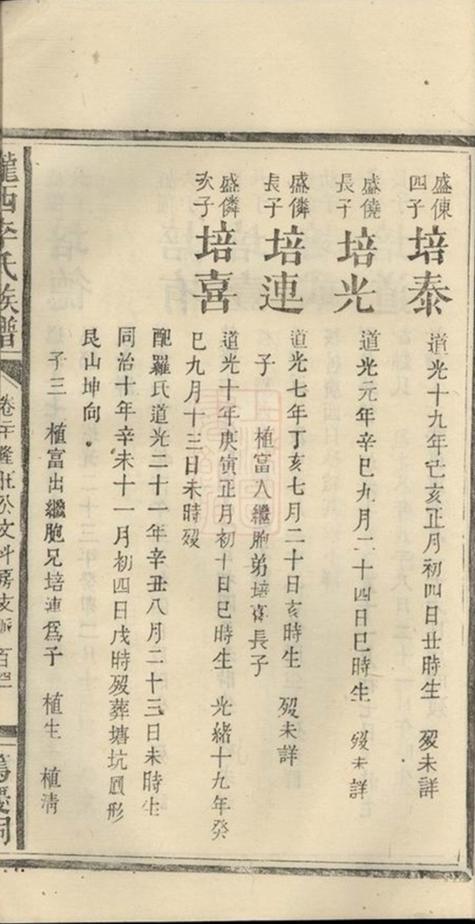 盛倲四子 培泰 道光十九年己亥正月初四日丑時生 歿未詳
盛僥長子 培光 道光元年辛巳九月二十四日巳時生 歿未詳
盛僯長子 培連 道光七年丁亥七月二十日亥時生 歿未詳
子 植富入繼胞弟培喜長子
盛僯次子 培喜 道光十年庚寅正月初十日巳時生 光緒十九年癸
巳九月十三日未時歿
配羅氏道光二十一年辛丑八月二十三日未時生
同治十年辛未十一月初四日戌時歿葬塘坑圓形
艮山坤向
子三 植富出繼胞兄培連為子 植生 植清
隴西李氏族譜 卷 隆旺公文科房支 篤慶祠